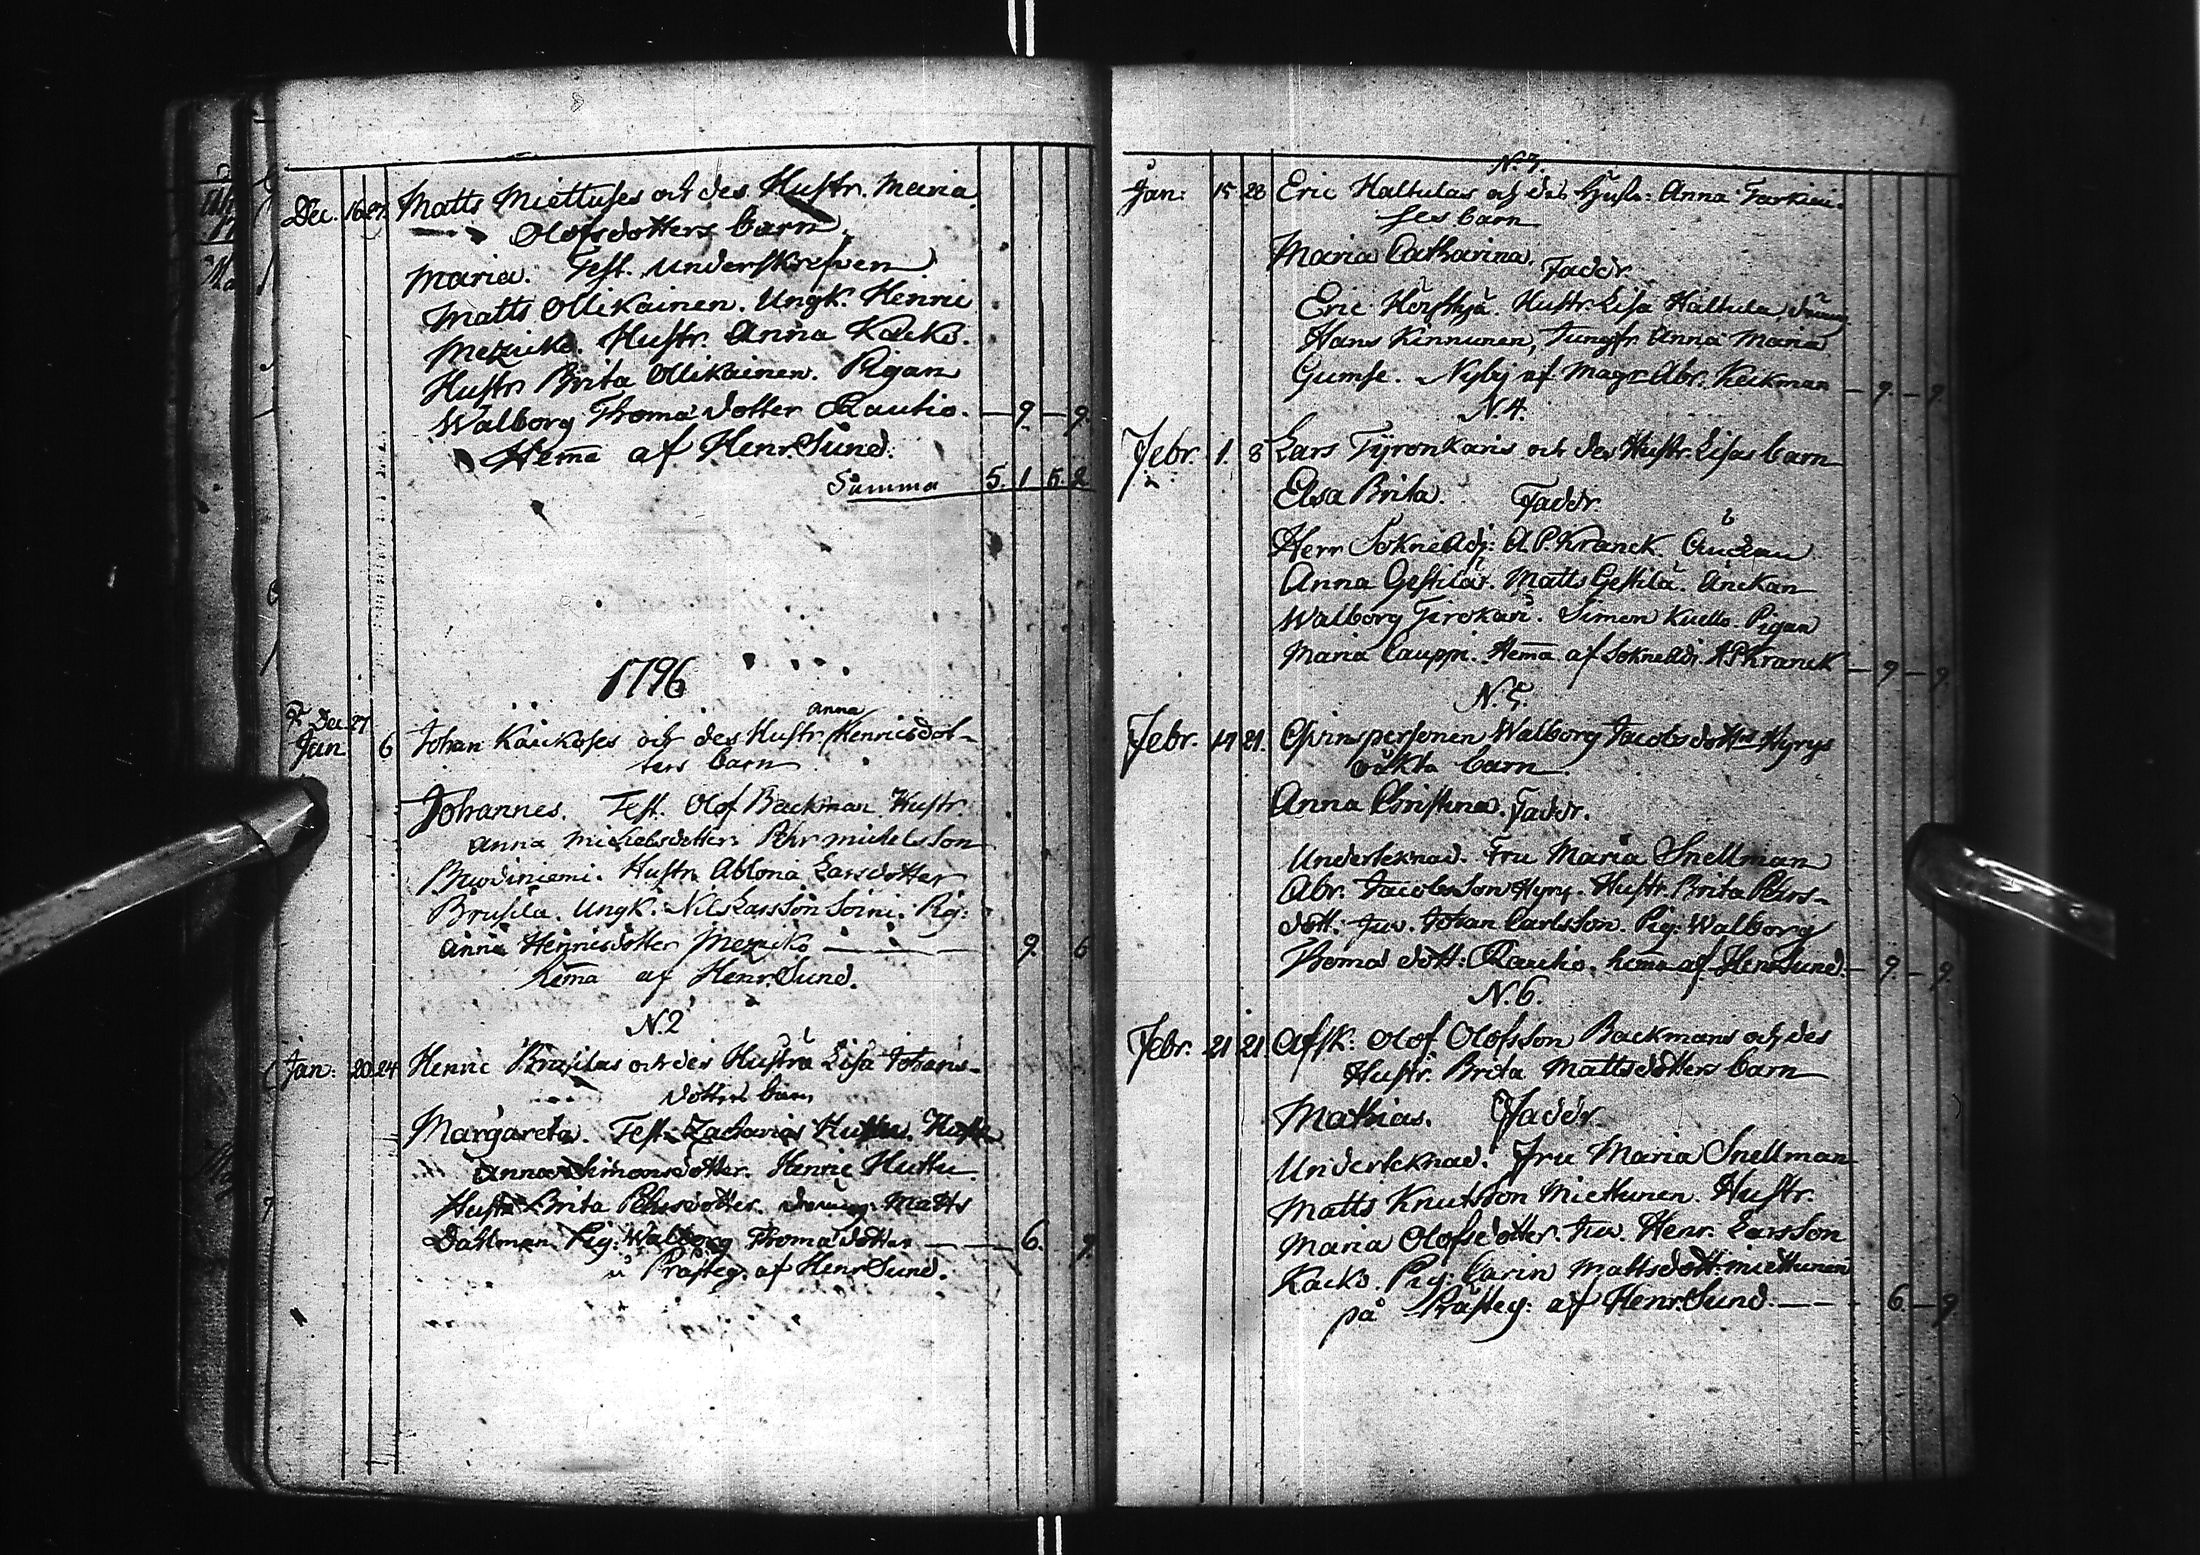 Dec. 16 27 Matts Miettuses och des Hustr. Maria
Olofsdotters barn.
Maria. Test. Underskrefven
Matts Ollikainen. Ungk. Henric
Mezuiko. Hustr. Anna Kaiko.
Hustr. Brita Ollikainen. Pigan
Walborg Thomadotter Rautio. — 9 — 9
Hema af Henr. Sund.
Summa 5. 1 5. 2
1796
F. Dec. 27
anna
Jan 6 Johan Kaikoses och des Hustr. Henricsdot-
ters barn
Johannes. Test. Olof Backman. Hustr.
Anna Michelsdotter. Pehr Michelsson
Hustr. Larsdotter
Brusila. Ungk. Nils Larsson Soini. Pig:
Anna Henricsdotter Mezuiko — — 9. 6
hema af Henr. Sund.
N. 2
Jan: 20 24 Henric Brusilas och des Hustru Lisa Johans-
dotters barn
Margareta. Test. Zacharias Huttu. Hustr.
Anna Simonsdotter. Henric Huttu.
Hustr. Brita Pehrsdotter. Dräng: Matts
Dahlman. Pig: Walborg Thomadotter — — 6. 9
i Prästeg. af Henr Sund.
N. 3.
Jan: 15 28 Eric Haltulas och des Hustr: Anna Tarkiai-
ses barn
Maria Catharina. Faddr.
Eric Hustr. Lisa Haltula, Dräng
Hans Kinnunen, Jungfr. Anna Maria
Gumse. Nyby af Magr Abr. Keckman — 9. — 9
N. 4.
Febr. 1. 8 Lars Tyronkaris och des Hustr. Lisas barn
Elsa Brita. Faddr.
Herr SokneAdj: A. P. Kranck. Änckan
Anna Gestilä. Matts Gestilä. Änckan
Walborg Tirokari. Simon Kuello. Pigan
Maria Cauppi. Hema af SokneAdj. A P Kranck — 9 — 9.
N. 5.
Febr. 14 21. Qvinspersonen Walborg Jacobsdotters Hyrys
oäkta barn.
Anna Christina. Faddr.
Underteknad. Fru Maria Snellman
Abr. Jacobsson Hyrys. Hustr. Brita Pehrs-
dott. Juv. Johan Carlsson. Pig: Walborg
Thomadott: Rautio. hema af Henr. Sund. — 9 — 9.
N. 6.
Febr. 21 21 Afsk: Olof Olofsson Backmans och des
Hustr. Brita Mattsdotters barn
Mathias. Faddr
Underteknad. Fru Maria Snellman
Matts Knutsson Miettunen. Hustr.
Maria Olofsdotter. Juv. Henr. Larsson
Kaiko. Pig: Carin Mattsdott: Miettunen
på Prästeg: af Henr. Sund. — — 6 — 9